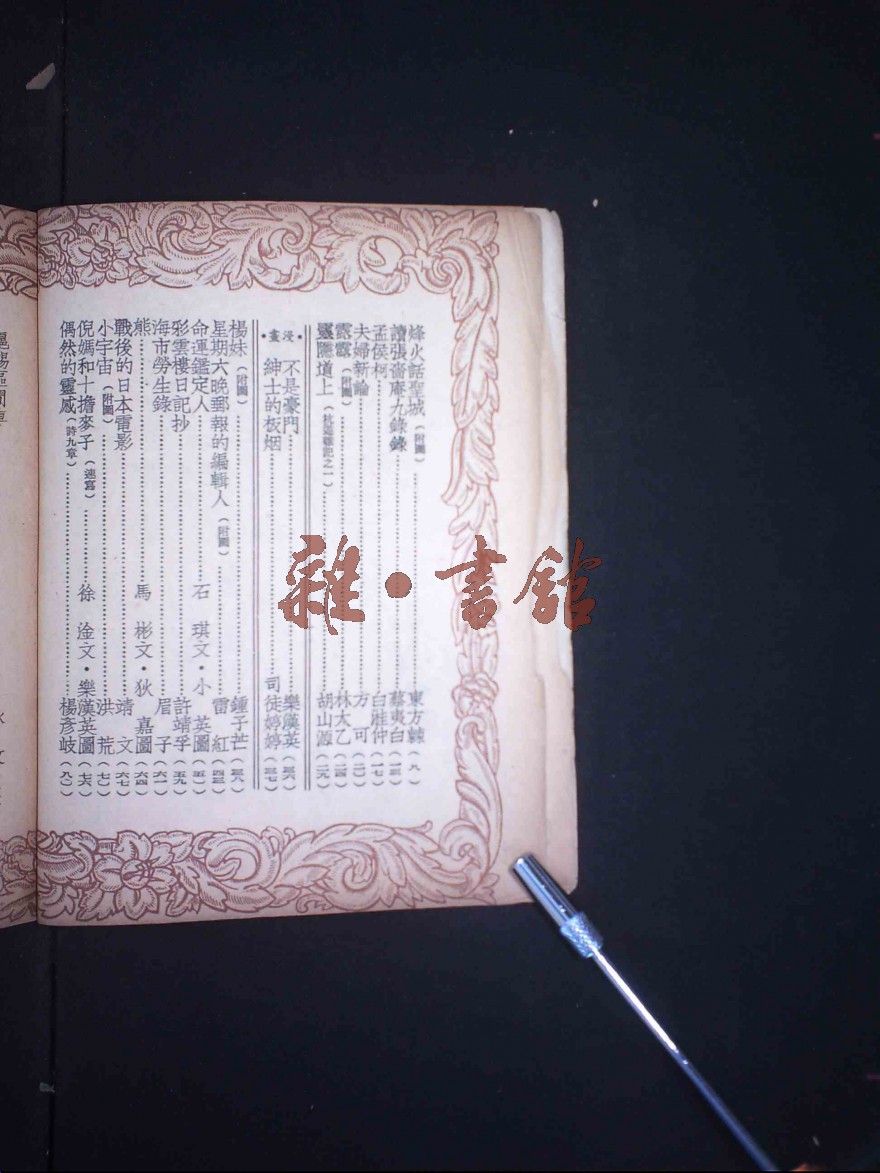 烽火話聖城(附圖)……東方棘(八)
讀張嗇庵九錄錄……蔡夷白(一三)
孟侯柯……白雅仲(一七)
夫婦新論……方 可(二〇)
霧霧(附圖)……林太乙(二四)
靈隱墳上(杭遊雜記之一)……胡山源(二九)
•漫畫•
不是豪門……樂漢英(三六)
紳士的板烟……司徒婷婷(三七)
楊妹(附圖)……鍾子芒(三八)
星期六晚郵報的編輯人(附圖)……雷 紅(四三)
命運鑑定人……石 琪文•小 英圖(五一)
彩雲樓日記抄……許靖孚(五九)
海市勞生錄……眉 子(六一)
熊……馬 彬文•狄 嘉圖(六四)
戰後的日本電影……靖 文(六七)
小宇宙(附圖)……洪 荒(七〇)
倪媽和十擔麥子(速寫)……徐 淦文•樂漢英圖(七六)
偶然的靈感(詩九章)……楊彥岐(八〇)
雜•書舘